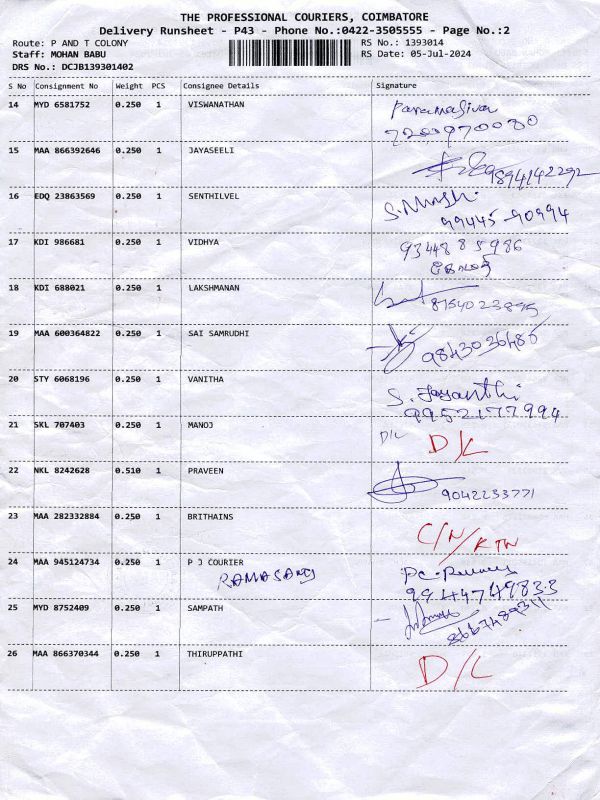 THE PROFESSIONAL COURIERS, COIMBATORE
Delivery Runsheet - P43 - Phone No.:0422-3505555 - Page No.:2
Route: P AND T COLONY RS No.: 1393014
Staff: MOHAN BABU RS Date: 05-Jul-2024
DRS No.: DCJB139301402
S No Consignment No Weight PCS Consignee Details Signature
14 MYD 6581752 0.250 1 VISWANATHAN Paramasiva
15 MAA 866392646 0.250 1 JAYASEELI
9894142292
16 EDQ 23863569 0.250 1 SENTHILVEL
99445-90994
17 KDI 986681 0.250 1 VIDHYA 9344885986
18 KDI 688021 0.250 1 LAKSHMANAN
8154023895
19 MAA 600364822 0.250 1 SAI SAMRUDHI
9843036485
20 STY 6068196 0.250 1 VANITHA S. Jayanthi
9952177994
21 SKL 707403 0.250 1 MANOJ D/L D/L
22 NKL 8242628 0.510 1 PRAVEEN
9042233771
23 MAA 282332884 0.250 1 BRITHAINS C/N/KTN
24 MAA 945124734 0.250 1 P J COURIER
9944749833
25 MYD 8752409 0.250 1 SAMPATH
8667489311
26 MAA 866370344 0.250 1 THIRUPPATHI D/L